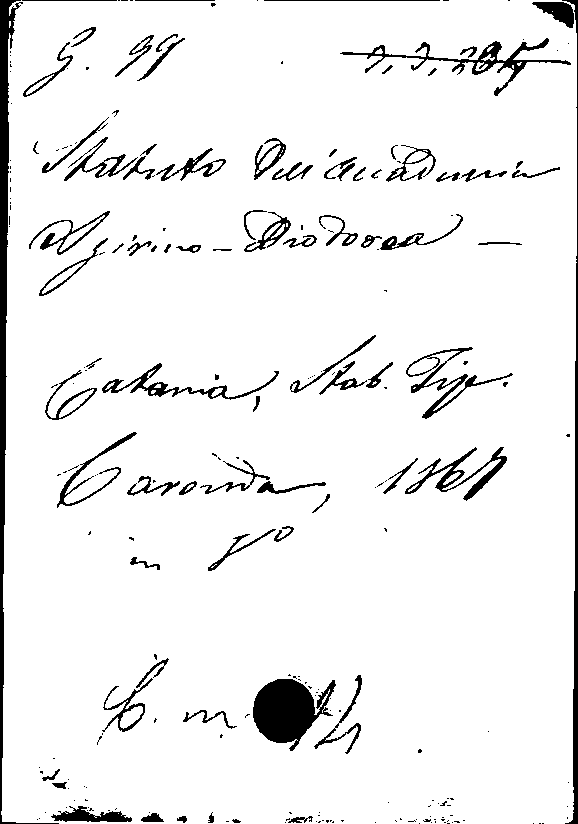 G. 99
Statuto dell'Accademia
Agirino-Diodorea —
Catania, Stab. Tip.
Caronda, 1867
in 8º
C. m.